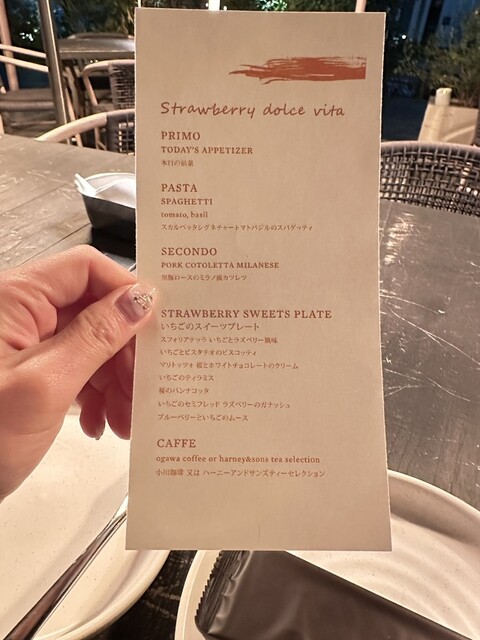 Strawberry dolce vita
PRIMO
TODAY'S APPETIZER
本日の前菜
PASTA
SPAGHETTI
tomato, basil
スカルペッタシグネチャートマトバジルのスパゲッティ
SECONDO
PORK COTOLETTA MILANESE
黒豚ロースのミラノ風カツレツ
STRAWBERRY SWEETS PLATE
いちごのスイーツプレート
スフォリアテッラ いちごとラズベリー風味
いちごとピスタチオのビスコッティ
マリトッツォ 桜とホワイトチョコレートのクリーム
いちごのティラミス
桜のパンナコッタ
いちごのセミフレッド ラズベリーのガナッシュ
ブルーベリーといちごのムース
CAFFE
ogawa coffee or harney&sons tea selection
小川珈琲 又は ハーニーアンドサンズティーセレクション